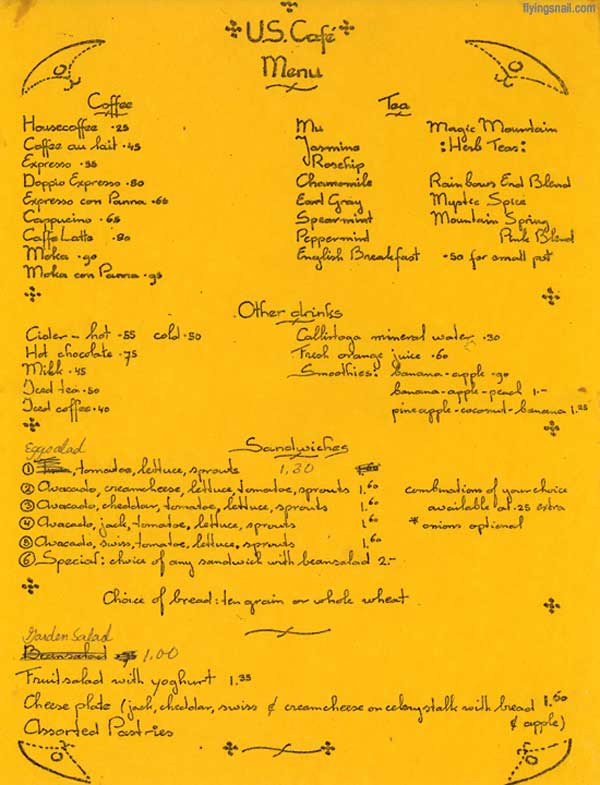 flyingsnail.com
U.S. Café
Menu
Coffee
Housecoffee .25
Coffee au lait .45
Expresso .55
Doppio Expresso .80
Expresso con Panna .66
Cappucino .65
Caffe Latte .80
Moka .90
Moka con Panna .95
Tea
Mu
Jasmine
Rosehip
Chamomile
Earl Gray
Spearmint
Peppermint
English Breakfast
Magic Mountain
:Herb Teas:
Rainbows End Blend
Mystic Spice
Mountain Spring
Pink Blend
.50 for small pot
Other drinks
Cider - hot .55 cold .50
Hot chocolate .75
Milk .45
Iced tea .50
Iced coffee .40
Callistoga mineral water .30
Fresh orange juice .60
Smoothies: banana-apple .90
banana-apple-peach 1.-
pineapple-coconut-banana 1.25
Sandwiches
Eggsalad
① , tomatoe, lettuce, sprouts 1.30
② Avacado, creamcheese, lettuce, tomatoe, sprouts 1.60
③ Avacado, cheddar, tomatoe, lettuce, sprouts 1.60
④ Avacado, jack, tomatoe, lettuce, sprouts 1.60
⑤ Avacado, swiss, tomatoe, lettuce, sprouts 1.60
⑥ Special: choice of any sandwich with beansalad 2.-
combinations of your choice
available at .25 extra
* onions optional
Choice of bread: ten grain or whole wheat
Garden Salad
Beansalad 1.00
Fruitsalad with yoghurt 1.35
Cheese plate (jack, cheddar, swiss & creamcheese on celerystalk with bread 1.60
& apple)
Assorted Pastries